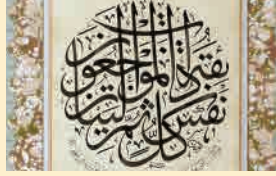 كل نفس ذائقة الموت ثم إلينا ترجعون